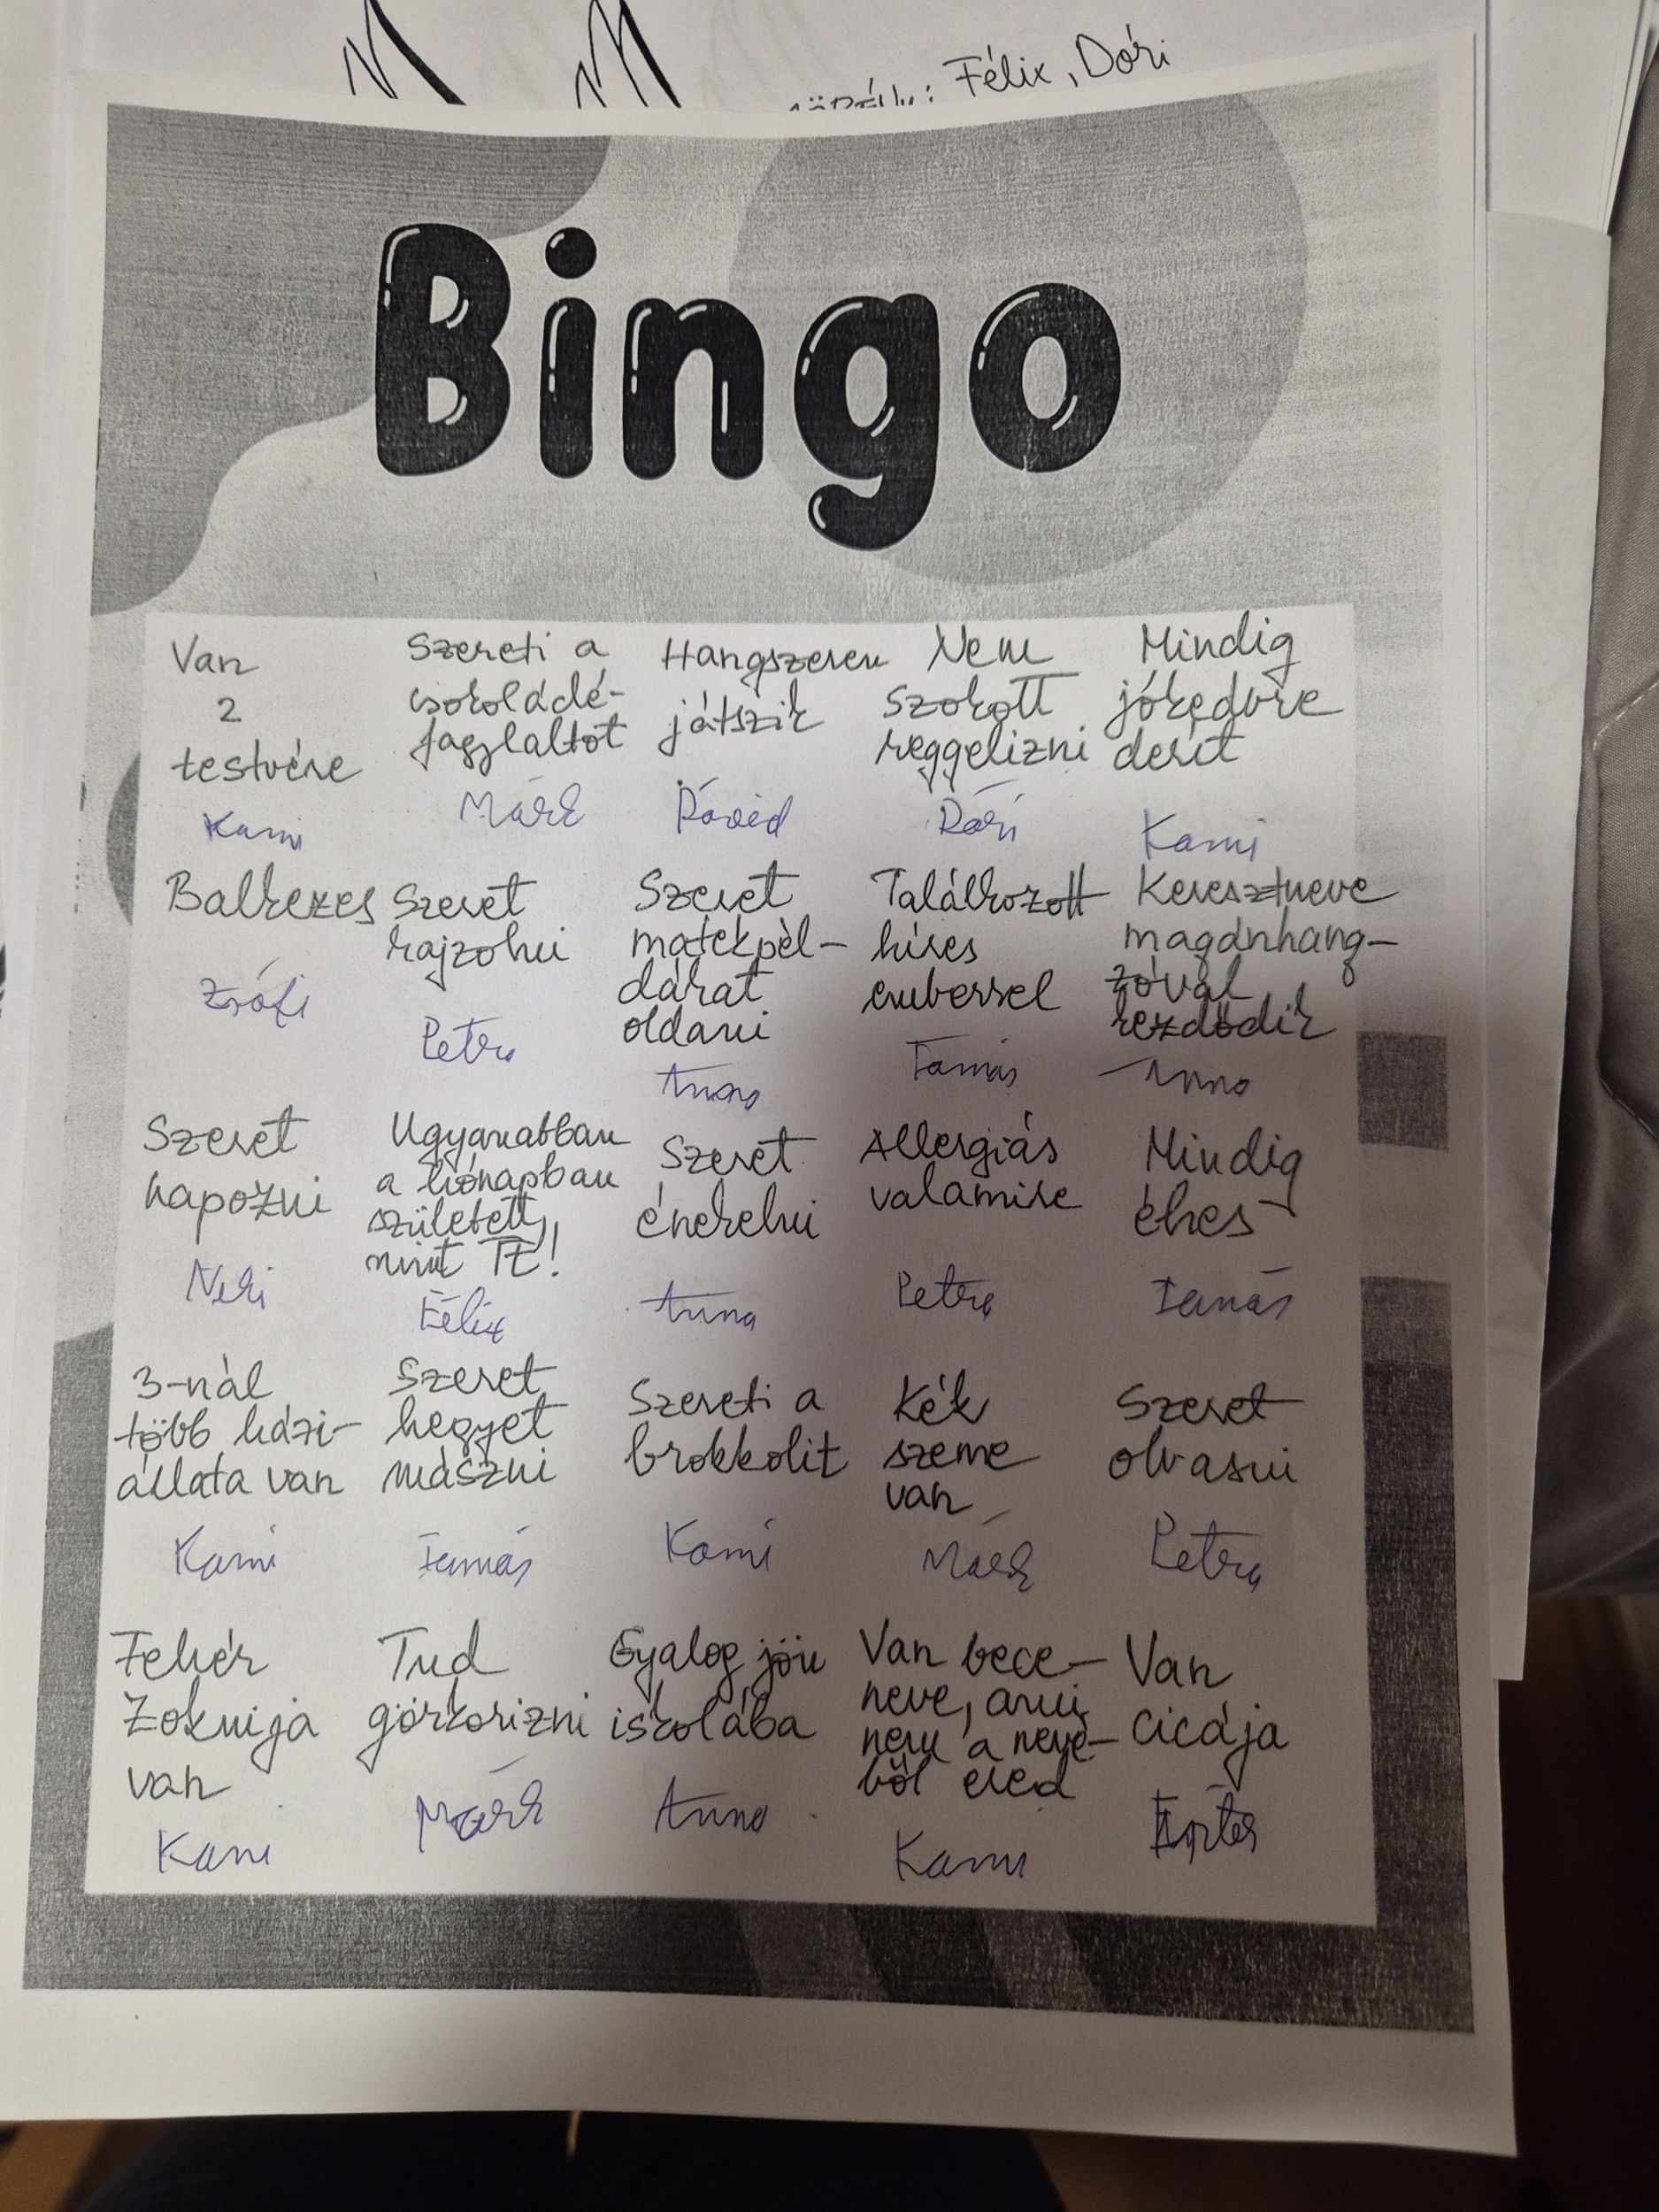 Félix, Dóri
Bingo
Van
2
testvére
Kami
Szereti a
csokoládé-
fagylaltot
Márk
Hangszeren
játszik
Dávid
Nem
szokott
reggelizni
Dóri
Mindig
jókedvre
derít
Kami
Balkezes
Zsófi
Szeret
rajzolni
Petra
Szeret
matekpél-
dákat
oldani
Anna
Találkozott
híres
emberrel
Tamás
Keresztneve
magánhang-
zóval
kezdődik
Anna
Szeret
napozni
Neki
Ugyanabban
a hónapban
született,
mint TE!
Félix
Szeret
énekelni
Anna
Allergiás
valamire
Petra
Mindig
éhes
Tamás
3-nál
több házi-
állata van
Kami
Szeret
hegyet
mászni
Tamás
Szereti a
brokkolit
Kami
Kék
szeme
van
Márk
Szeret
olvasni
Petra
Fehér
zoknija
van
Kami
Tud
görkorizni
Márk
Gyalog jön
iskolába
Anna
Van bece-
neve, ami
nem a neve-
ből ered
Kami
Van
cicája